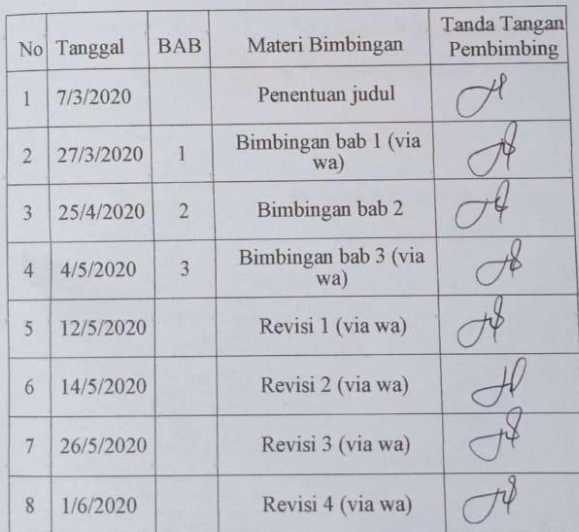 No Tanggal BAB Materi Bimbingan Tanda Tangan
Pembimbing
1 7/3/2020 Penentuan judul
2 27/3/2020 1 Bimbingan bab 1 (via
wa)
3 25/4/2020 2 Bimbingan bab 2
4 4/5/2020 3 Bimbingan bab 3 (via
wa)
5 12/5/2020 Revisi 1 (via wa)
6 14/5/2020 Revisi 2 (via wa)
7 26/5/2020 Revisi 3 (via wa)
8 1/6/2020 Revisi 4 (via wa)